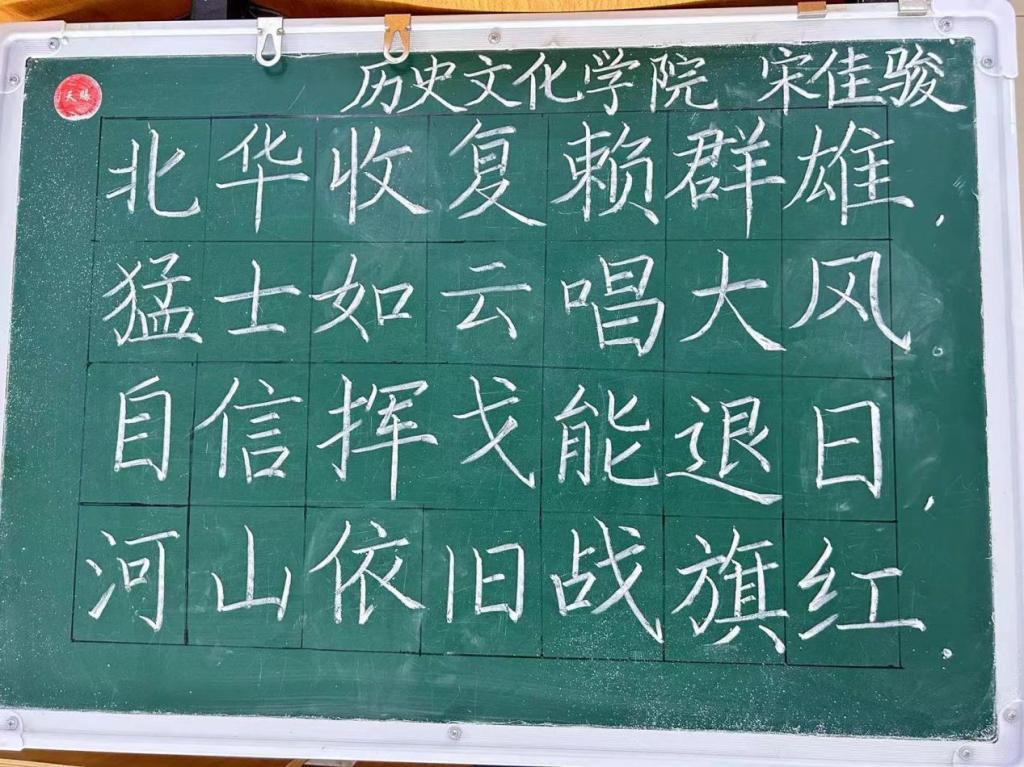 历史文化学院 宋佳骏
北华收复赖群雄,
猛士如云唱大风。
自信挥戈能退日,
河山依旧战旗红。